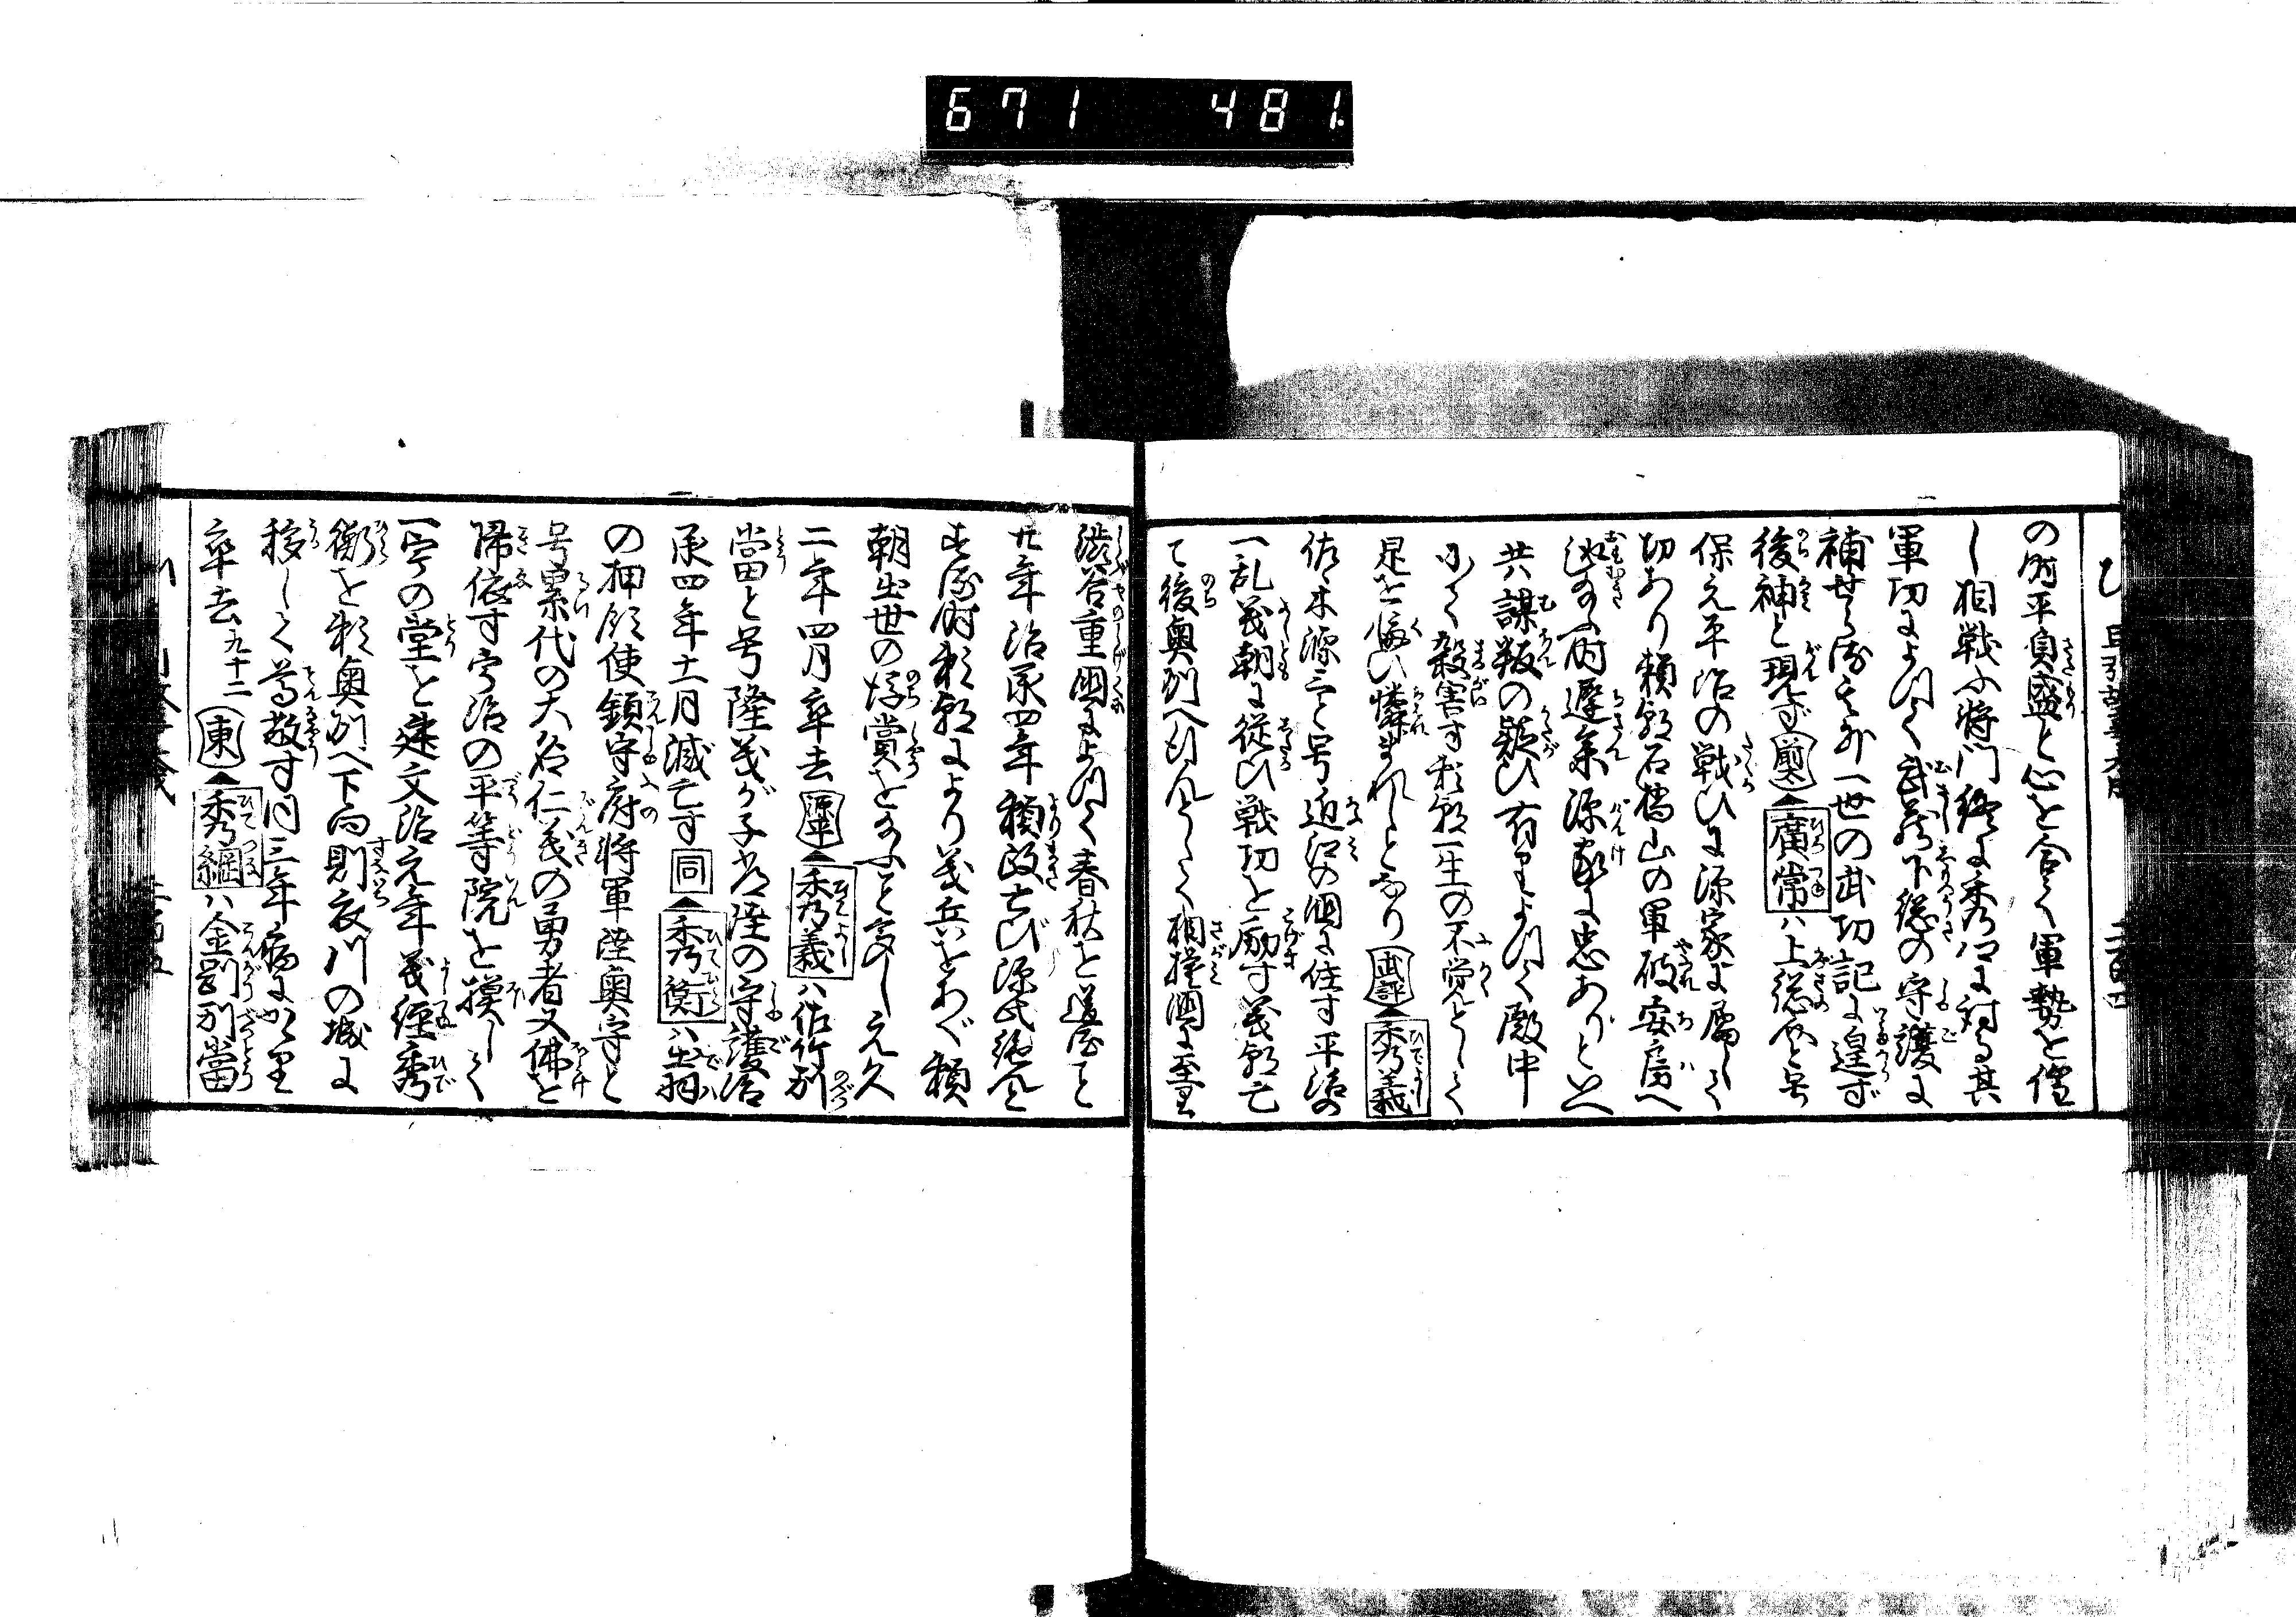 671 481
の時平貞盛と心を合て軍勢を催
し相戦ふ将門終に秀郷に討る其
軍功によつて武蔵下総の守護に
補せらる其外一世の武功記に遑ず
後神と現ず 廣常ハ上総介と号
保元平治の戦ひに源家に属して
功あり頼朝石橋山の軍破安房へ
趣の時遅参源家に忠ありといへ
共謀叛の疑ひ有によつて殿中
にて殺害す頼朝一生の不覚とて
是を悔ひ憐まれしとなり 武評 秀義
佐々木源三と号近江の国に住す平治の
一乱義朝に従ひ戦功を励す義朝亡
て後奥州へ行んとて相摸国に至
渋谷重国によつて春秋を送と
廿年治承四年頼政亡び源氏絶んと
する時頼朝により義兵をあぐ頼
朝出世の後賞を与ふと云々し元久
二年四月卒去 源平 秀義ハ佐竹別
當田と号隆義が子常陸の守護治
承四年十一月滅亡す 同 秀衡ハ出羽
の押領使鎮守府将軍陸奥守と
号累代の大名仁義の勇者又佛を
帰依す宇治の平等院を摸して
一宇の堂を建文治元年義経秀
衡を頼奥州へ下向則衣川の城に
移して尊敬す同三年病にかゝり
卒去九十二 東 秀綱ハ金剛別當